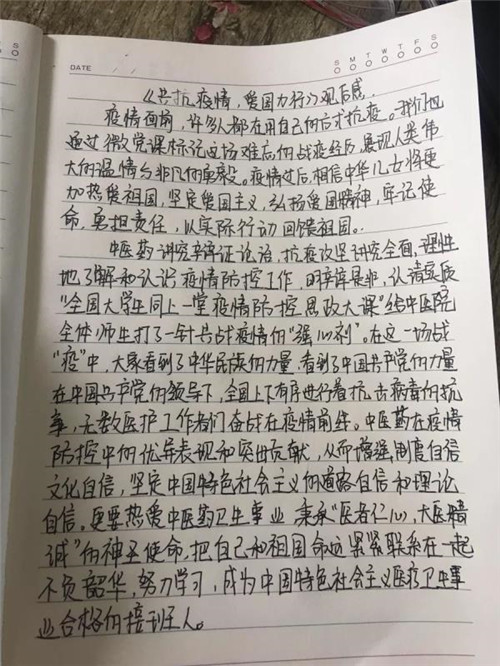 DATE / /
S M T W T F S
《共抗疫情，爱国力行》观后感.
疫情面前，许多人都在用自己的方式抗疫。我们也
通过微党课标记这场难忘的战疫经历，展现人类伟
大的温情与非凡的勇毅。疫情过后，相信中华儿女将更
加热爱祖国，坚定爱国主义，弘扬爱国精神，牢记使
命，勇担责任，以实际行动回馈祖国。
中医药讲究辩证论治，抗疫攻坚讲究全面，理性
地了解和认识疫情防控工作，明辨是非，认清实质
“全国大学生同上一堂疫情防控思政大课”给中医院
全体师生打了一针共战疫情的“强心剂”。在这一场战
“疫”中，大家看到了中华民族的力量，看到了中国共产党的力量
在中国共产党的领导下，全国上下有序进行着抗击病毒的抗
争，无数医护工作者们奋战在疫情前线。中医药在疫情
防控中的优异表现和突出贡献，从而增强制度自信
文化自信，坚定中国特色社会主义的道路自信和理论
自信。更要热爱中医药卫生事业，秉承“医者仁心，大医精
诚”的神圣使命，把自己和祖国命运紧紧联系在一起
不负韶华，努力学习，成为中国特色社会主义医疗卫生事
业合格的接班人。